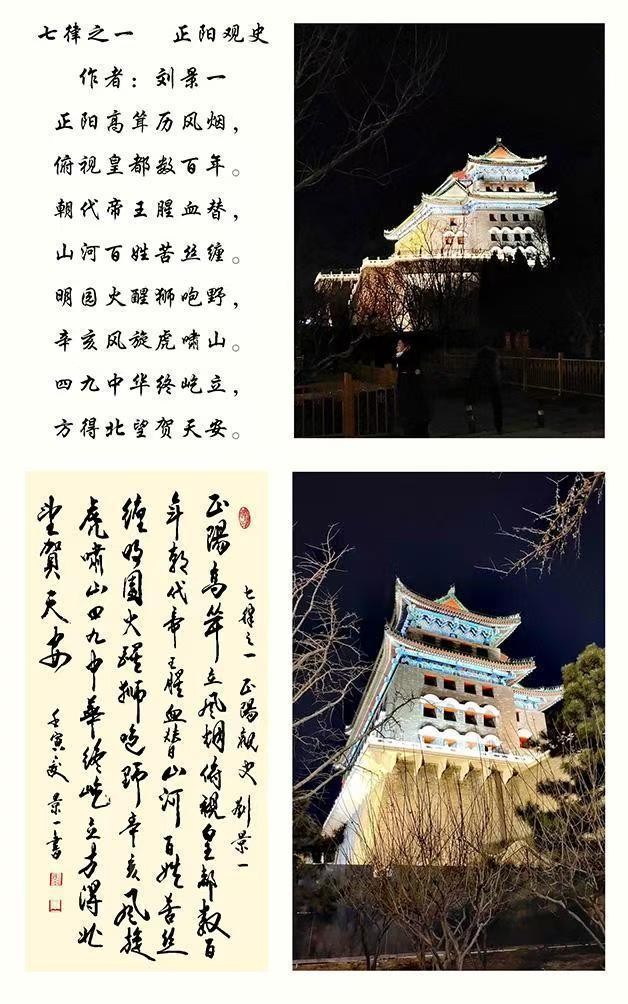 七律之一 正阳观史
作者：刘景一
正阳高耸历风烟，
俯视皇都数百年。
朝代帝王腥血替，
山河百姓苦丝缠。
明园火醒狮咆野，
辛亥风旋虎啸山。
四九中华终屹立，
方得北望贺天安。
七律之一 正陽觀史 刘景一
正陽高耸立风烟俯視皇都数百
年朝代帝王腥血替山河百姓苦丝
缠明園火醒狮咆野辛亥风旋
虎嘯山四九中華终屹立方得北
望賀天安
壬寅夏 景一書